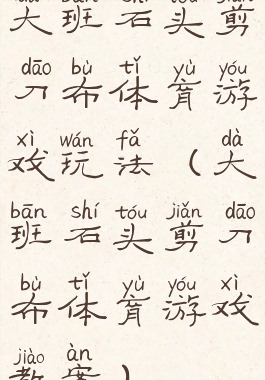 大 班 石 头 剪
dāo bù tǐ yù yóu
刀 布 体 育 游
xì wán fǎ dà
戏 玩 法 （ 大
bān shí tóu jiǎn dāo
班 石 头 剪 刀
bù tǐ yù yóu xì
布 体 育 游 戏
jiào àn
教 案 ）